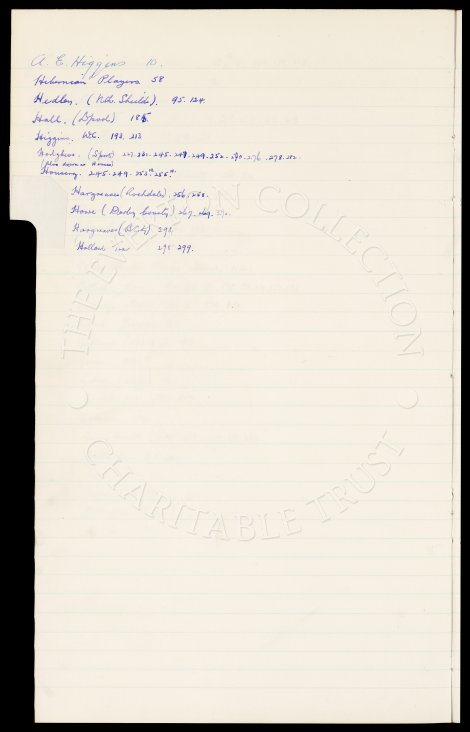 A. E. Higgins 10.
Hibernian Players 58
Hedley. (Nth. Shields). 95. 124.
Hall. (L'pool) 185
Higgins. W.C. 193. 213
Hodgkiss. (L'pool) 227. 261. 245. 249. 249. 252. 276. 278. 282.
245. 249. 252 255
Hargreaves (Rochdale). 256. 258.
Howe (Derby County) 267. 269.
Hargreaves 291
Holland 299.
THE EVERTON COLLECTION
CHARITABLE TRUST